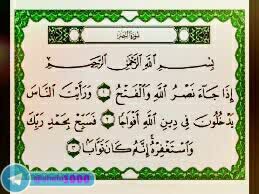 سورة النصر
بِسْمِ اللَّهِ الرَّحْمَٰنِ الرَّحِيمِ
إِذَا جَاءَ نَصْرُ اللَّهِ وَالْفَتْحُ ١ وَرَأَيْتَ النَّاسَ
يَدْخُلُونَ فِي دِينِ اللَّهِ أَفْوَاجًا ٢ فَسَبِّحْ بِحَمْدِ رَبِّكَ
وَاسْتَغْفِرْهُ إِنَّهُ كَانَ تَوَّابًا ٣